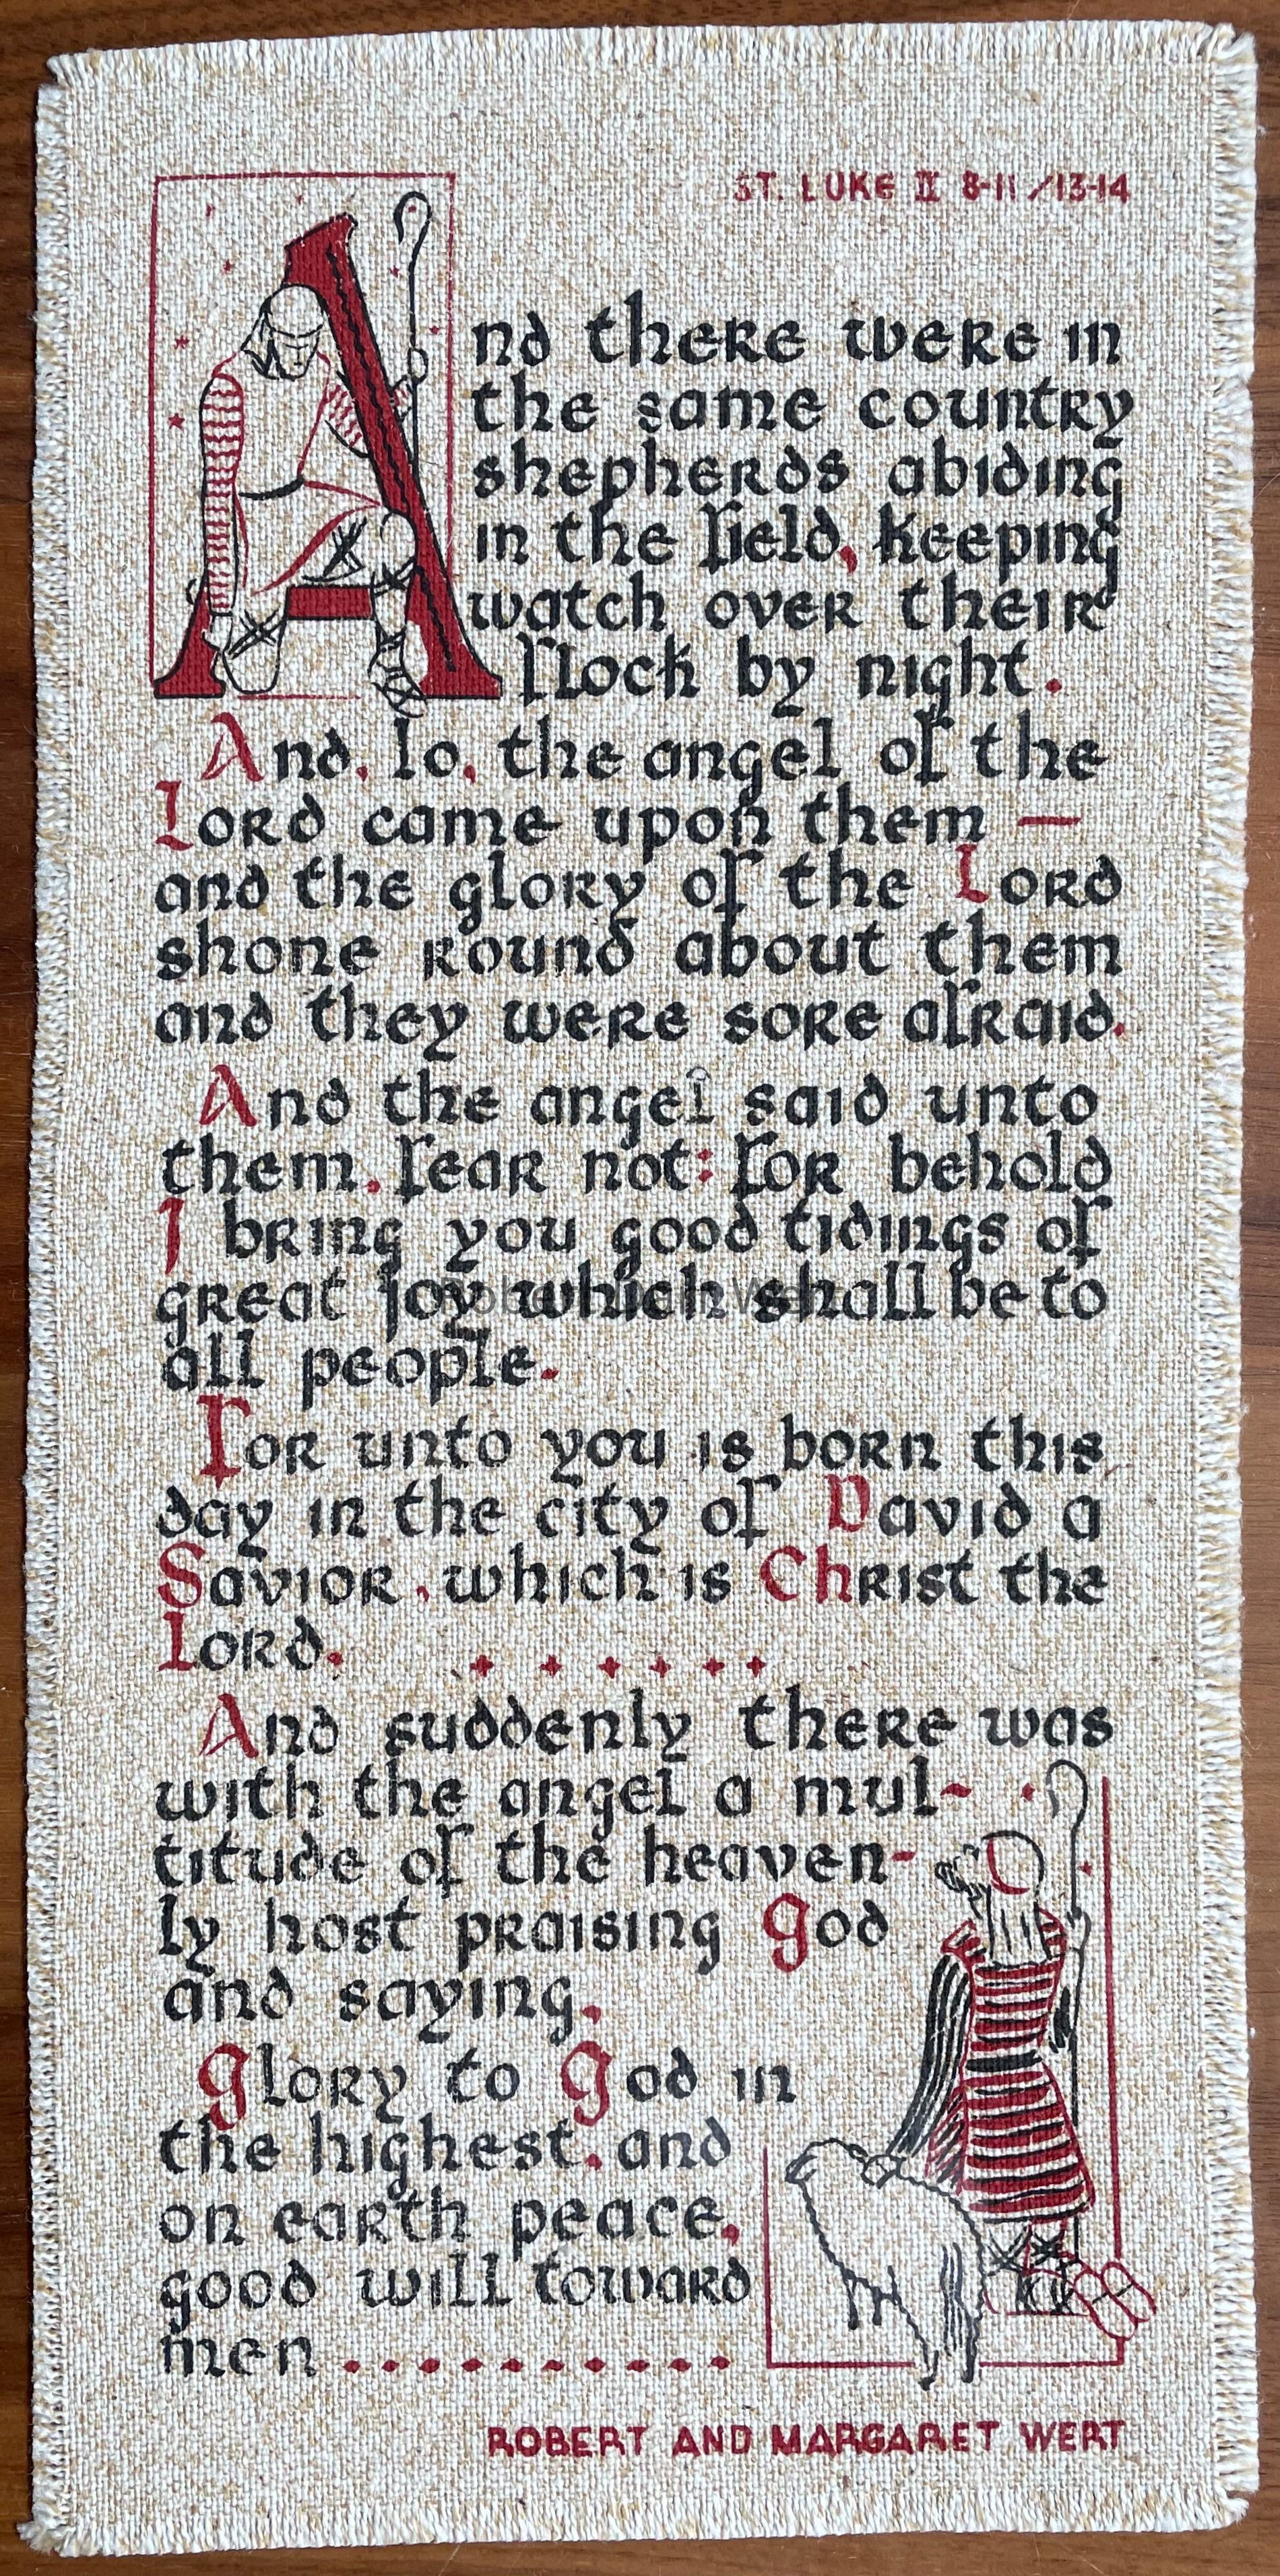 ST. LUKE II 8-11/13-14
And there were in
the same country
shepherds abiding
in the field, keeping
watch over their
flock by night.
And, lo, the angel of the
Lord came upon them —
and the glory of the Lord
shone round about them
and they were sore afraid.
And the angel said unto
them, fear not: for behold
I bring you good tidings of
great joy which shall be to
all people.
For unto you is born this
day in the city of David a
Savior, which is Christ the
Lord.
And suddenly there was
with the angel a mul-
titude of the heaven-
ly host praising God
and saying,
Glory to God in
the highest, and
on earth peace,
good will toward
men ..........
ROBERT AND MARGARET WERT